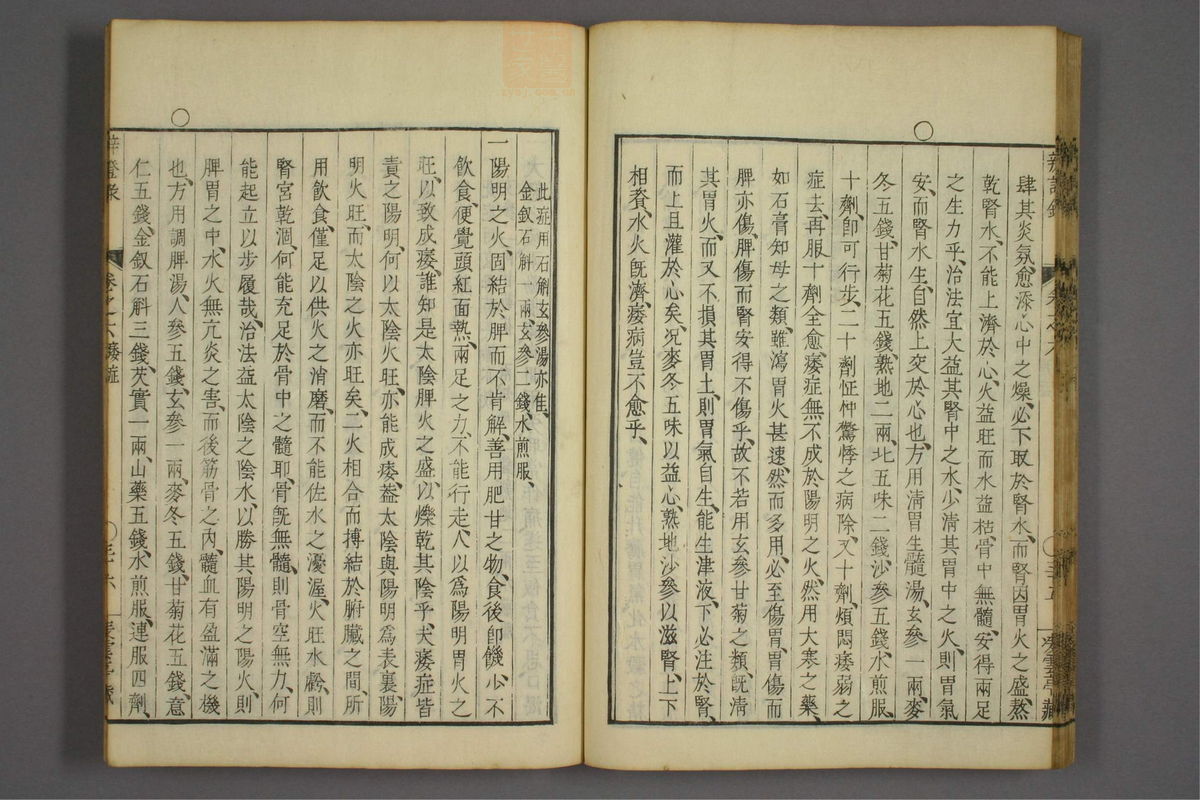 肆其炎氛愈添心中之燥必下取於腎水而腎因胃火之盛熬
乾腎水不能上濟於心火益旺而水益枯骨中無髓安得兩足
之生力乎治法宜大益其腎中之水少清其胃中之火則胃氣
安而腎水生自然上交於心也方用清胃生髓湯玄參一兩麥
冬五錢甘菊花五錢熟地二兩北五味二錢沙參五錢水煎服
十劑即可行步二十劑怔忡驚悸之病除又十劑煩悶痿弱之
症去再服十劑全愈痿症無不成於陽明之火然用大寒之藥
如石膏知母之類雖瀉胃火甚速然而多用必至傷胃胃傷而
脾亦傷脾傷而腎安得不傷乎故不若用玄參甘菊之類既清
其胃火而又不損其胃土則胃氣自生能生津液下必注於腎
而上且灌於心矣况麥冬五味以益心熟地沙參以滋腎上下
相資水火旣濟痿病豈不愈乎
此症用石斛玄參湯亦佳
金釵石斛一兩玄參二錢水煎服
一陽明之火固結於脾而不肯解善用肥甘之物食後即饑少不
飲食便覺頭紅面熱兩足之力不能行走人以爲陽明胃火之
旺以致成痿誰知是太陰脾火之盛以爍乾其陰乎夫痿症皆
責之陽明何以太陰火旺亦能成痿葢太陰與陽明爲表裏陽
明火旺而太陰之火亦旺矣二火相合而搏結於腑臟之間所
用飲食僅足以供火之消磨而不能佐水之優渥火旺水虧則
腎宮乾涸何能充足於骨中之髓耶骨旣無髓則骨空無力何
能起立以步履哉治法益太陰之陰水以勝其陽明之陽火則
脾胃之中水火無亢炎之害而後筋骨之內髓血有盈滿之機
也方用調脾湯人參五錢玄參一兩麥冬五錢甘菊花五錢薏
仁五錢金釵石斛三錢芡實一兩山藥五錢水煎服連服四劑
卷之六痿症